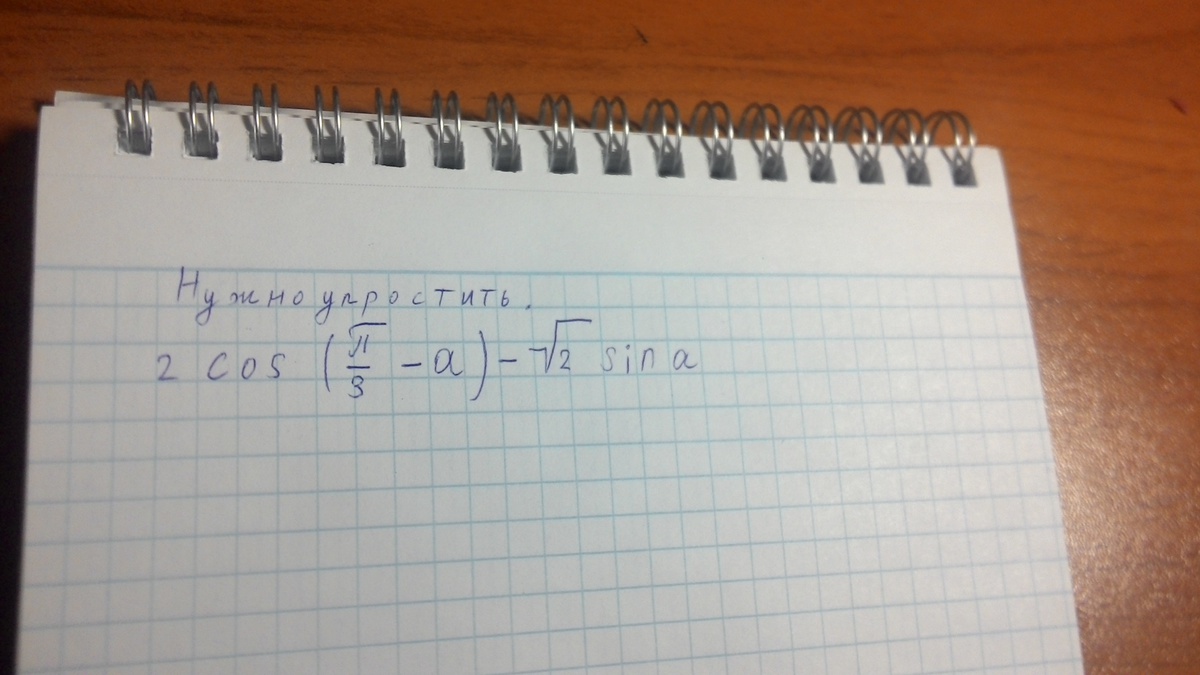 Нужно упростить.
2 cos (π/3 - a) - √2 sin a